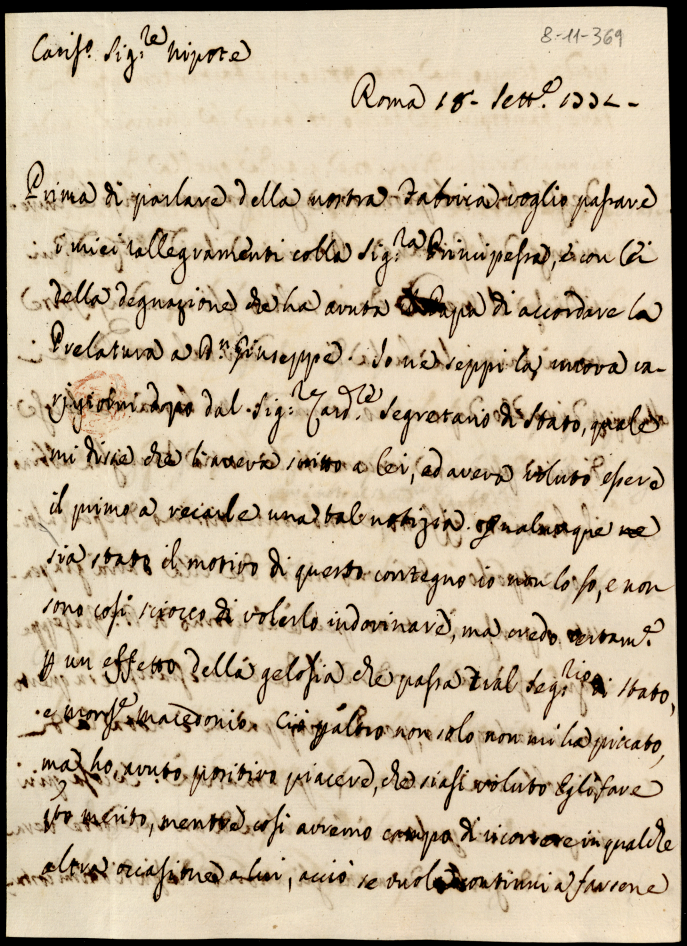 8-11-369
Cariss.º Sig.re Nipote
Roma 18. Sett.e 1772.
Prima di parlare della nostra Fabrica, voglio passare
i miei rallegramenti colla Sig.ra Principessa, e con lei
della degnazione che ha avuta il Papa di accordare la
Prelatura a D.n Giuseppe. Io ne seppi la nuova va-
rj giorni dopo dal Sig.re Card.le Segretario di Stato, quale
mi disse che l'aveva scritto a lei, ed aveva voluto essere
il primo a recarle una tal notizia. Qualunque ne
sia stato il motivo di questo contegno io non lo so, e non
sono così sciocco di volerlo indovinare, ma credo certam.e
p un effetto della gelosia che passa tra'l Seg.rio di Stato,
e Mons.e Macedonio. Ciò p altro non solo non mi ha piccato,
ma ho avuto positivo piacere, che siasi voluto Egli fare
q.sto merito, mentre così avremo campo di ricorrere in qualche
altra occasione a lui, acciò se vuole continui a farsene